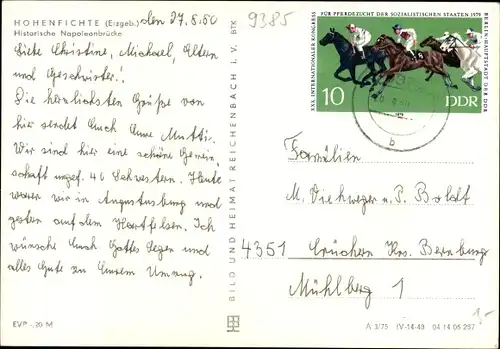 HOHENFICHTE (Erzgeb.)
Historische Napoleonbrücke
den 27.8.80
9385
Liebe Christine, Michael, Eltern
und Geschwister!
Die herzlichsten Grüße von
hier sendet Euch Eure Mutti.
Wir sind hier eine schöne Gemein-
schaft ungef. 40 Schwestern. Heute
waren wir in Augustusburg und
gestern auf dem Hartfelsen. Ich
wünsche Euch Gottes Segen und
alles Gute zu Eurem Umzug.
EVP -,20 M
BILD UND HEIMAT REICHENBACH i. V. BTK
XXX. INTERNATIONALER KONGRESS FÜR PFERDEZUCHT DER SOZIALISTISCHEN STAATEN 1979
BERLIN-HAUPTSTADT DER DDR
10
DDR
1979
b
Familien
M. Viehweger u. P. Boldt
4351 Crüchern Krs. Bernburg
Mühlberg 1
A 3/75 IV-14-48 04 14 06 287